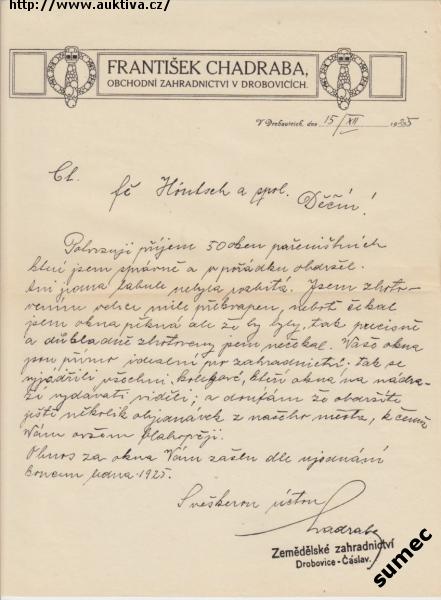 http://www.auktiva.cz/
FRANTIŠEK CHADRABA,
OBCHODNÍ ZAHRADNICTVÍ V DROBOVICÍCH.
V Drobovicích, dne 15/XII 1925
Ct.
fě Höntsch a spol.
Děčín!
Potvrzuji příjem 50 oken pařeništních
které jsem správně a v pořádku obdržel.
Ani jedna tabule nebyla rozbitá. Jsem zhoto-
vením velice mile překvapen, neboť čekal
jsem okna pěkná ale že by byly, tak precisně
a důkladně zhotoveny jsem nečekal. Vaše okna
jsou přímo ideální pro zahradnictví: tak se
vyjádřili všechni kolegové, kteří okna na nádra-
ží vydávati viděli; a doufám že obdržíte
ještě několik objednávek z našeho města, k čemu
Vám ovšem blahopřeji.
Obnos za okna Vám zašlu dle ujednání
koncem ledna 1925.
S veškerou úctou
Chadraba
Zemědělské zahradnictví
Drobovice - Čáslav.
sumec